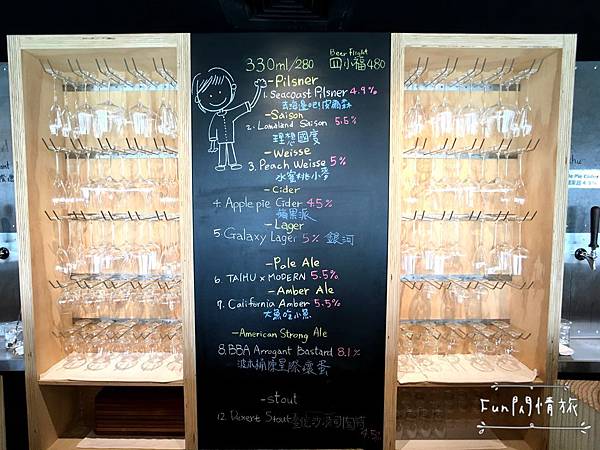 330ml/280
Beer Flight
四小福480
-Pilsner
1. Seacoast Pilsner 4.9%
去海邊吧!皮爾森
-Saison
2. Lamaland Saison 5.5%
理想國度
-Weisse
3. Peach Weisse 5%
水蜜桃小麥
-Cider
4. Apple pie Cider 4.5%
蘋果派
-Lager
5. Galaxy Lager 5% 銀河
-Pale Ale
6. TAIHU x MODERN 5.5%
-Amber Ale
7. California Amber 5.5%
大魚吃小魚
-American Strong Ale
8. BBA Arrogant Bastard 8.1%
波本桶傲星除壞蛋
-stout
12. Dessert Stout
4.5%
le Pie Cider
Fun閃情旅